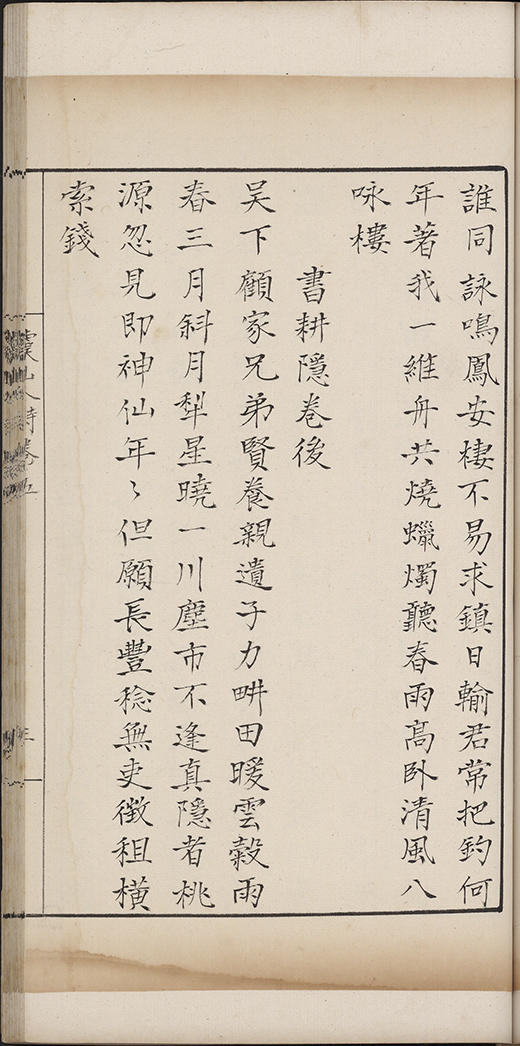 誰同詠鳴鳳安棲不易求鎮日輸君常把釣何
年著我一維舟共燒蠟燭聽春雨高臥清風八
咏樓
書耕隱卷後
吴下顧家兄弟賢養親遺子力畊田暖雲穀雨
春三月斜月犁星曉一川塵市不逢真隱者桃
源忽見即神仙年〻但願長豐稔無吏徵租橫
索錢